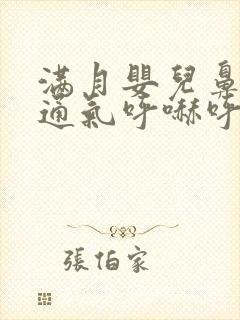 滿月嬰兒鼻
通氣呼嚇呼
張伯家